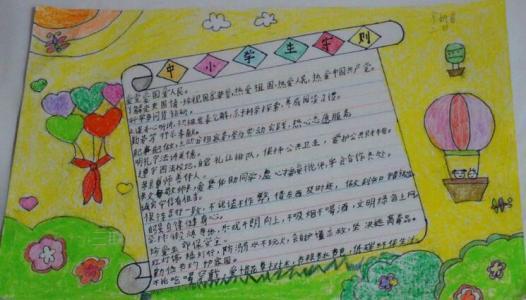 中小学生守则
爱党爱国爱人民。
了解党史国情,珍视国家荣誉,热爱祖国,热爱人民,热爱中国共产党。
好学多问肯钻研。
上课专心听讲,积极发表见解,乐于科学探索,养成阅读习惯。
勤劳笃行乐奉献。
自己事自己做,主动分担家务,参与劳动实践,热心志愿服务。
明礼守法讲美德。
遵守国法校纪,自觉礼让排队,保持公共卫生,爱护公共财物。
孝亲尊师善待人。
孝父母敬师长,爱集体助同学,虚心接受批评,学会合作共处。
诚实守信有担当。
保持言行一致,不说谎不作弊,借东西及时还,做到知错就改。
自强自律健身心。
坚持锻炼身体,乐观开朗向上,不吸烟不喝酒,文明绿色上网。
珍爱生命保安全。
红灯停绿灯行,防溺水不玩火,会自护懂求救,坚决远离毒品。
勤俭节约护家园。
不比吃喝穿戴,爱惜花草树木,节粮节水节电,低碳环保生活。